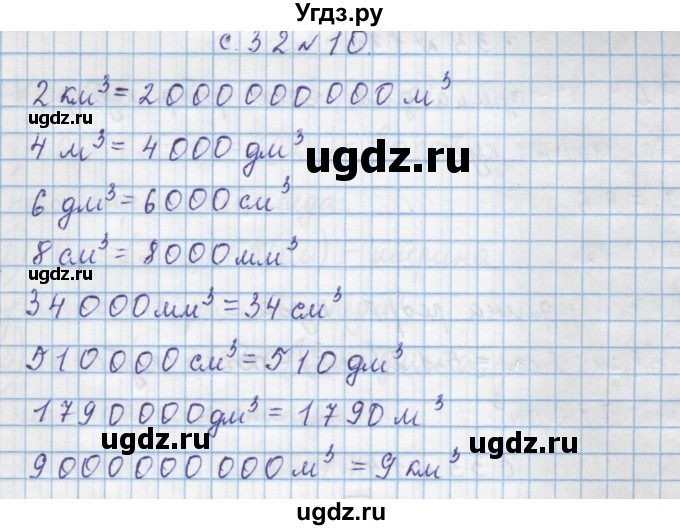 Угдз.ру
с. 32 № 10.
2 км³ = 2000000000 м³
ugdz.ru
4 м³ = 4000 дм³
ugdz.ru
6 дм³ = 6000 см³
8 см³ = 8000 мм³
ugdz.ru
34000 мм³ = 34 см³
510000 см³ = 510 дм³
1790000 дм³ = 1790 м³
ugdz.ru
ugdz.ru
9000000000 м³ = 9 км³
ugdz.ru